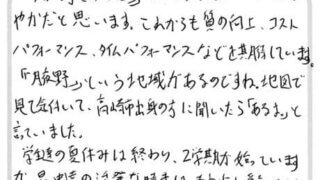 やかだと思います。これからも質の向上、コスト
パフォーマンス、タイムパフォーマンスなどを期しています。
「月夜野」という地域があるのですね。地図で
見て気付いて、高崎市出身の方に聞いたら「あるよ」と
言っていました。
学生達の夏休みは終わり、2学期が始っています
が